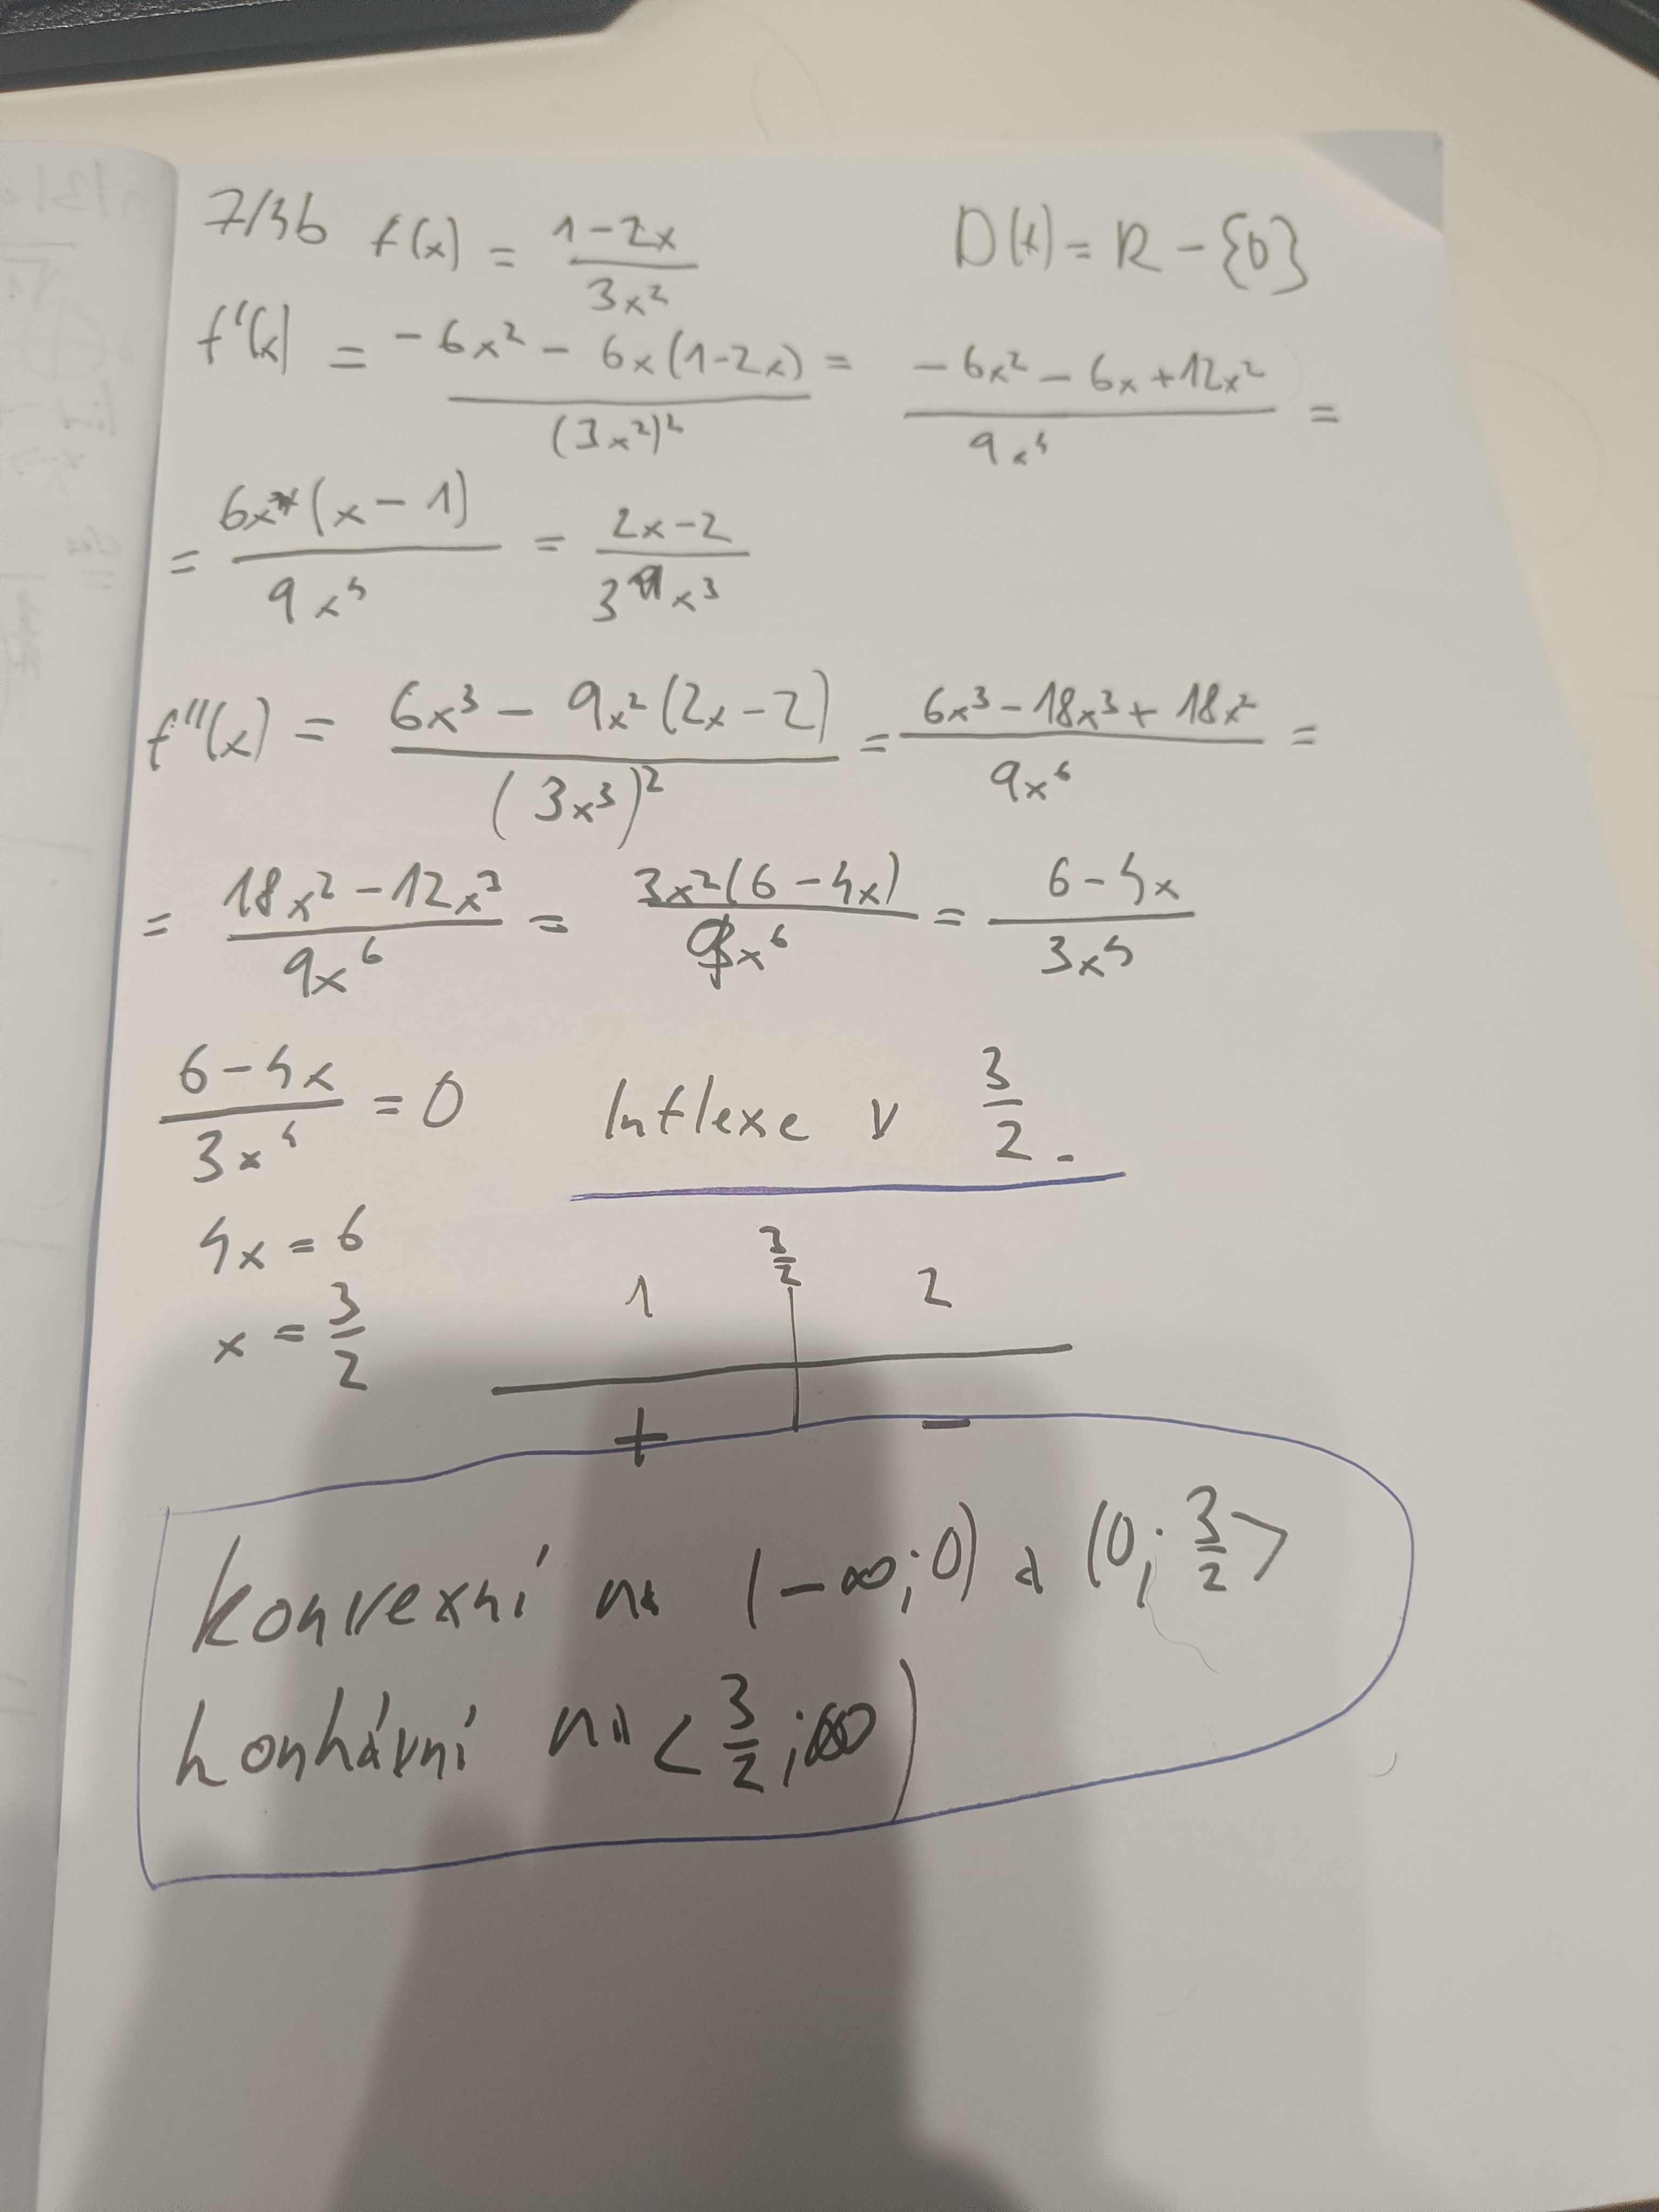 7/3b f(x) = (1-2x)/(3x²) D(f) = R - {0}
f'(x) = (-6x² - 6x(1-2x))/((3x²)²) = (-6x² - 6x + 12x²)/(9x⁴) =
= (6x(x-1))/(9x⁴) = (2x-2)/(3x³)
f''(x) = (6x³ - 9x²(2x-2))/((3x³)²) = (6x³ - 18x³ + 18x²)/(9x⁶) =
= (18x² - 12x³)/(9x⁶) = (3x²(6-4x))/(9x⁶) = (6-4x)/(3x⁴)
(6-4x)/(3x⁴) = 0 Inflexe v 3/2.
4x = 6
3/2
1 2
x = 3/2
+ -
konvexní na (-∞;0) a (0;3/2>
konkávní na <3/2;∞)